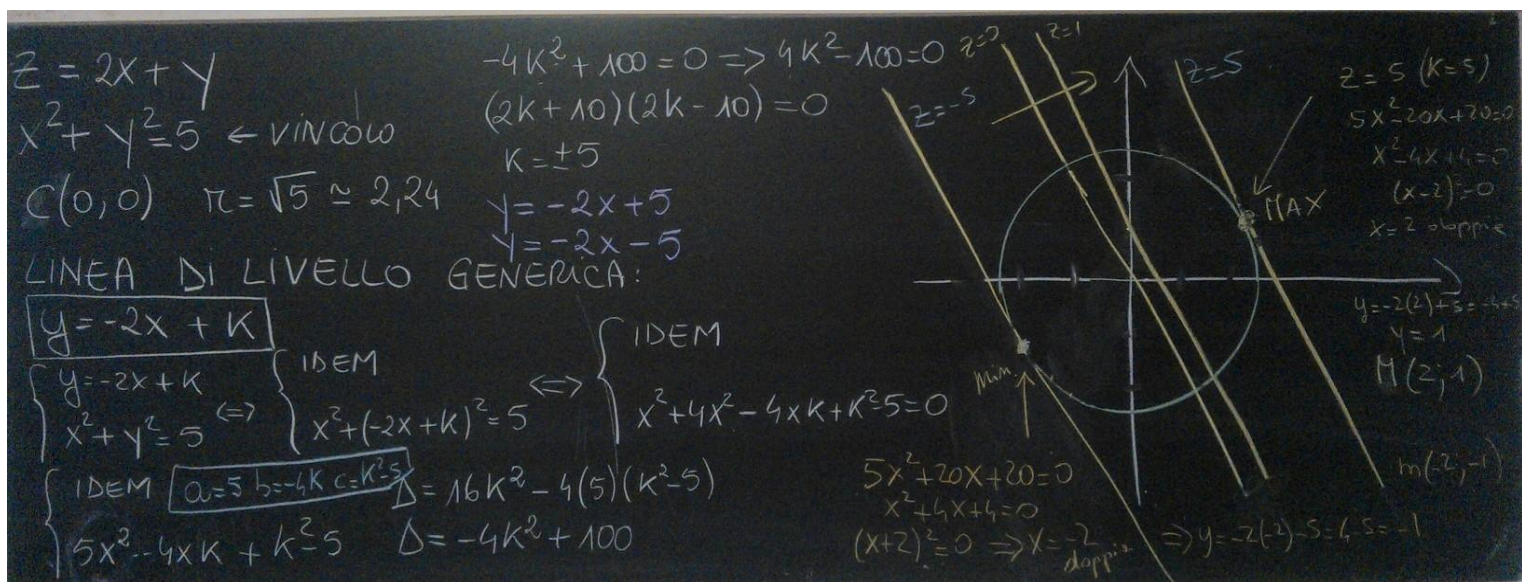 Z = 2x + y
x² + y² = 5 ← VINCOLO
C(0,0) r = √5 ≃ 2,24
LINEA DI LIVELLO GENERICA:
y = -2x + K
{ y = -2x + K
x² + y² = 5
⇔
{ IDEM
x² + (-2x + K)² = 5
⇔
{ IDEM
x² + 4x² - 4xK + K² - 5 = 0
{ IDEM
5x² - 4xK + K² - 5
a=5 b=-4K c=K²-5
Δ = 16K² - 4(5)(K² - 5)
Δ = -4K² + 100
-4K² + 100 = 0 => 4K² - 100 = 0
(2K + 10)(2K - 10) = 0
K = ±5
y = -2x + 5
y = -2x - 5
Z=-5
Z=0
Z=1
Z=5
MAX
Min.
5x² + 20x + 20 = 0
x² + 4x + 4 = 0
(x+2)² = 0 => x = -2 doppia => y = -2(-2) - 5 = 4 - 5 = -1
Z = 5 (K=5)
5x² - 20x + 20 = 0
x² - 4x + 4 = 0
(x-2)² = 0
x = 2 doppia
y = -2(2) + 5 = -4 + 5
y = 1
M(2;1)
m(-2;-1)